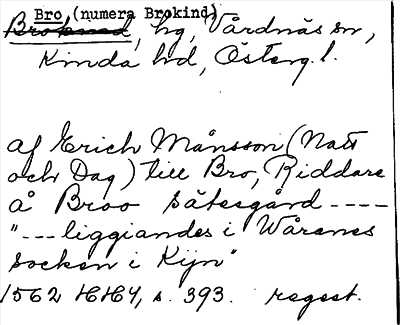 Bro (numera Brokind)
Brokind, hg, Vårdnäs sn,
Kinda hd, Österg. l.
af Erich Månsson (Natt
och Dag) till Bro, Riddare
å Broo sätesgård ----
"---liggiandes i Wårenes
socken i Kijn"
1562 HH4, s. 393. regest.